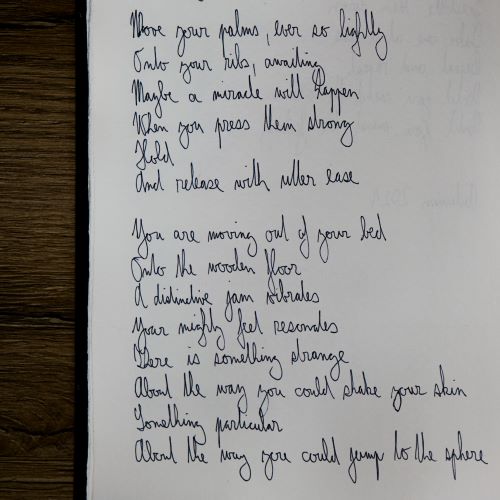 Move your palms, ever so lightly
Onto your ribs, awaiting
Maybe a miracle will happen
When you press them strong
Hold
And release with utter ease
You are moving out of your bed
Onto the wooden floor
A distinctive jam vibrates
Your mighty feet resonates
There is something strange
About the way you could shake your skin
Something particular
About the way you could jump to the sphere
Autumn 2021